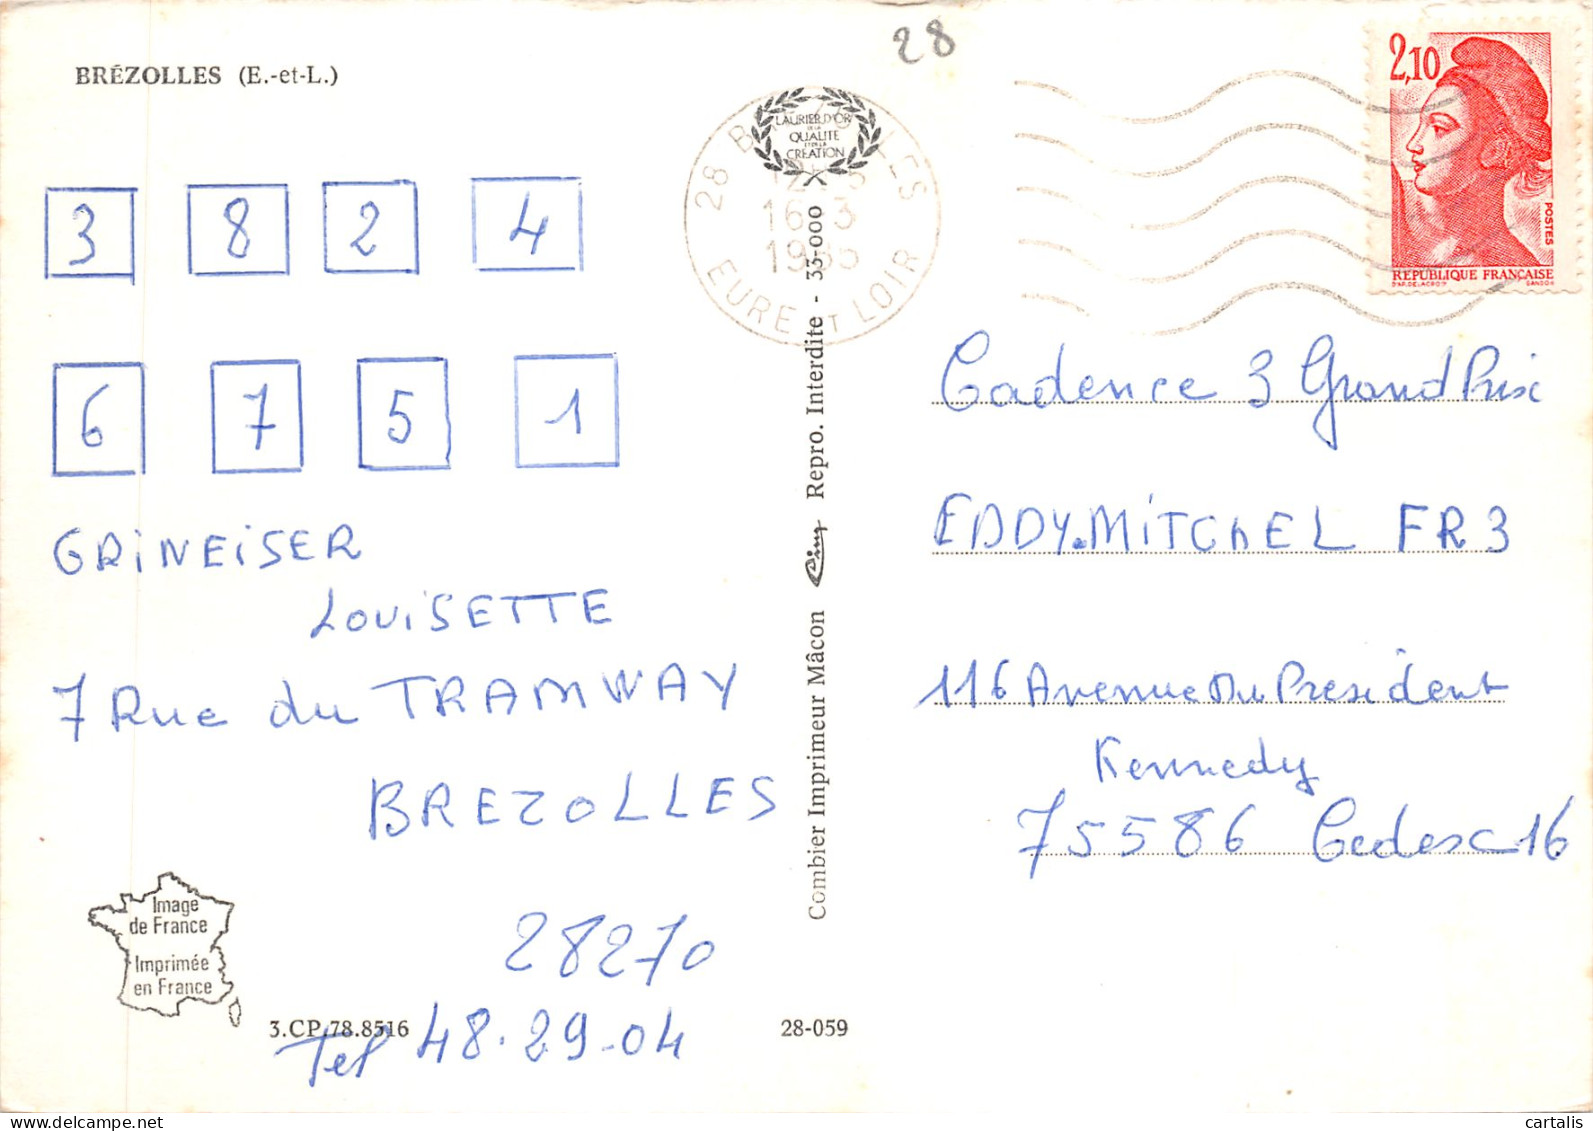 28
BRÉZOLLES (E.-et-L.)
3 8 2 4
6 7 5 1
GRINEISER
LOUISETTE
7 Rue du TRAMWAY
BREZOLLES
28270
Tel 48.29-04
Image
de France
Imprimée
en France
3.CP.78.8516
28-059
LAURIER D'OR
DE LA
QUALITE
ET DE LA
CREATION
16-3
EURE ET LOIR
Combier Imprimeur Mâcon Cim Repro. Interdite - 33-000
2,10
POSTES
REPUBLIQUE FRANÇAISE
D'AP. DELACROIX GANDON
Cadence 3 Grand Prix
EDDY.MITCHEL FR3
116 Avenue Du President
Kennedy
75586 Cedex 16
cartalis